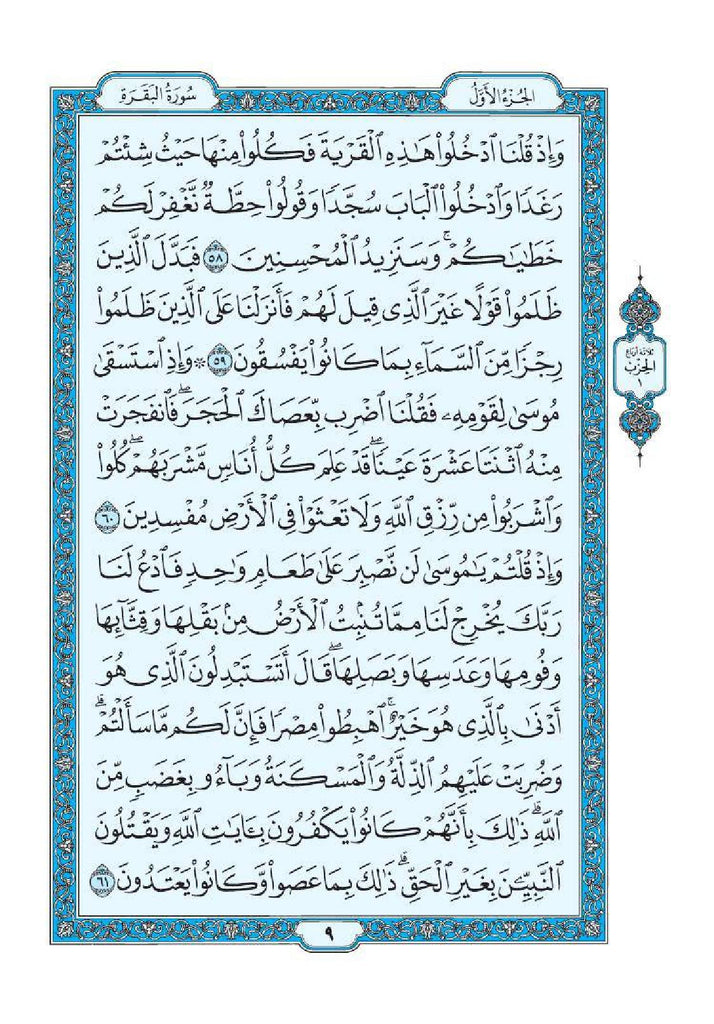 الجُزْءُ الأَوَّلُ
سُورَةُ البَقَرَةِ
وَإِذْ قُلْنَا ٱدْخُلُوا۟ هَـٰذِهِ ٱلْقَرْيَةَ فَكُلُوا۟ مِنْهَا حَيْثُ شِئْتُمْ
رَغَدًا وَٱدْخُلُوا۟ ٱلْبَابَ سُجَّدًا وَقُولُوا۟ حِطَّةٌ نَّغْفِرْ لَكُمْ
خَطَـٰيَـٰكُمْ ۚ وَسَنَزِيدُ ٱلْمُحْسِنِينَ ٥٨ فَبَدَّلَ ٱلَّذِينَ
ظَلَمُوا۟ قَوْلًا غَيْرَ ٱلَّذِى قِيلَ لَهُمْ فَأَنزَلْنَا عَلَى ٱلَّذِينَ ظَلَمُوا۟
رِجْزًا مِّنَ ٱلسَّمَآءِ بِمَا كَانُوا۟ يَفْسُقُونَ ٥٩ * وَإِذِ ٱسْتَسْقَىٰ
مُوسَىٰ لِقَوْمِهِۦ فَقُلْنَا ٱضْرِب بِّعَصَاكَ ٱلْحَجَرَ ۖ فَٱنفَجَرَتْ
مِنْهُ ٱثْنَتَا عَشْرَةَ عَيْنًا ۖ قَدْ عَلِمَ كُلُّ أُنَاسٍ مَّشْرَبَهُمْ ۖ كُلُوا۟
وَٱشْرَبُوا۟ مِن رِّزْقِ ٱللَّهِ وَلَا تَعْثَوْا۟ فِى ٱلْأَرْضِ مُفْسِدِينَ ٦٠
وَإِذْ قُلْتُمْ يَـٰمُوسَىٰ لَن نَّصْبِرَ عَلَىٰ طَعَامٍ وَٰحِدٍ فَٱدْعُ لَنَا
رَبَّكَ يُخْرِجْ لَنَا مِمَّا تُنۢبِتُ ٱلْأَرْضُ مِنۢ بَقْلِهَا وَقِثَّآئِهَا
وَفُومِهَا وَعَدَسِهَا وَبَصَلِهَا ۖ قَالَ أَتَسْتَبْدِلُونَ ٱلَّذِى هُوَ
أَدْنَىٰ بِٱلَّذِى هُوَ خَيْرٌ ۚ ٱهْبِطُوا۟ مِصْرًا فَإِنَّ لَكُم مَّا سَأَلْتُمْ ۗ
وَضُرِبَتْ عَلَيْهِمُ ٱلذِّلَّةُ وَٱلْمَسْكَنَةُ وَبَآءُو بِغَضَبٍ مِّنَ
ٱللَّهِ ۗ ذَٰلِكَ بِأَنَّهُمْ كَانُوا۟ يَكْفُرُونَ بِـَٔايَـٰتِ ٱللَّهِ وَيَقْتُلُونَ
ٱلنَّبِيِّـۧنَ بِغَيْرِ ٱلْحَقِّ ۗ ذَٰلِكَ بِمَا عَصَوا۟ وَّكَانُوا۟ يَعْتَدُونَ ٦١
ثلاثة أرباع
الحزب
١
٩